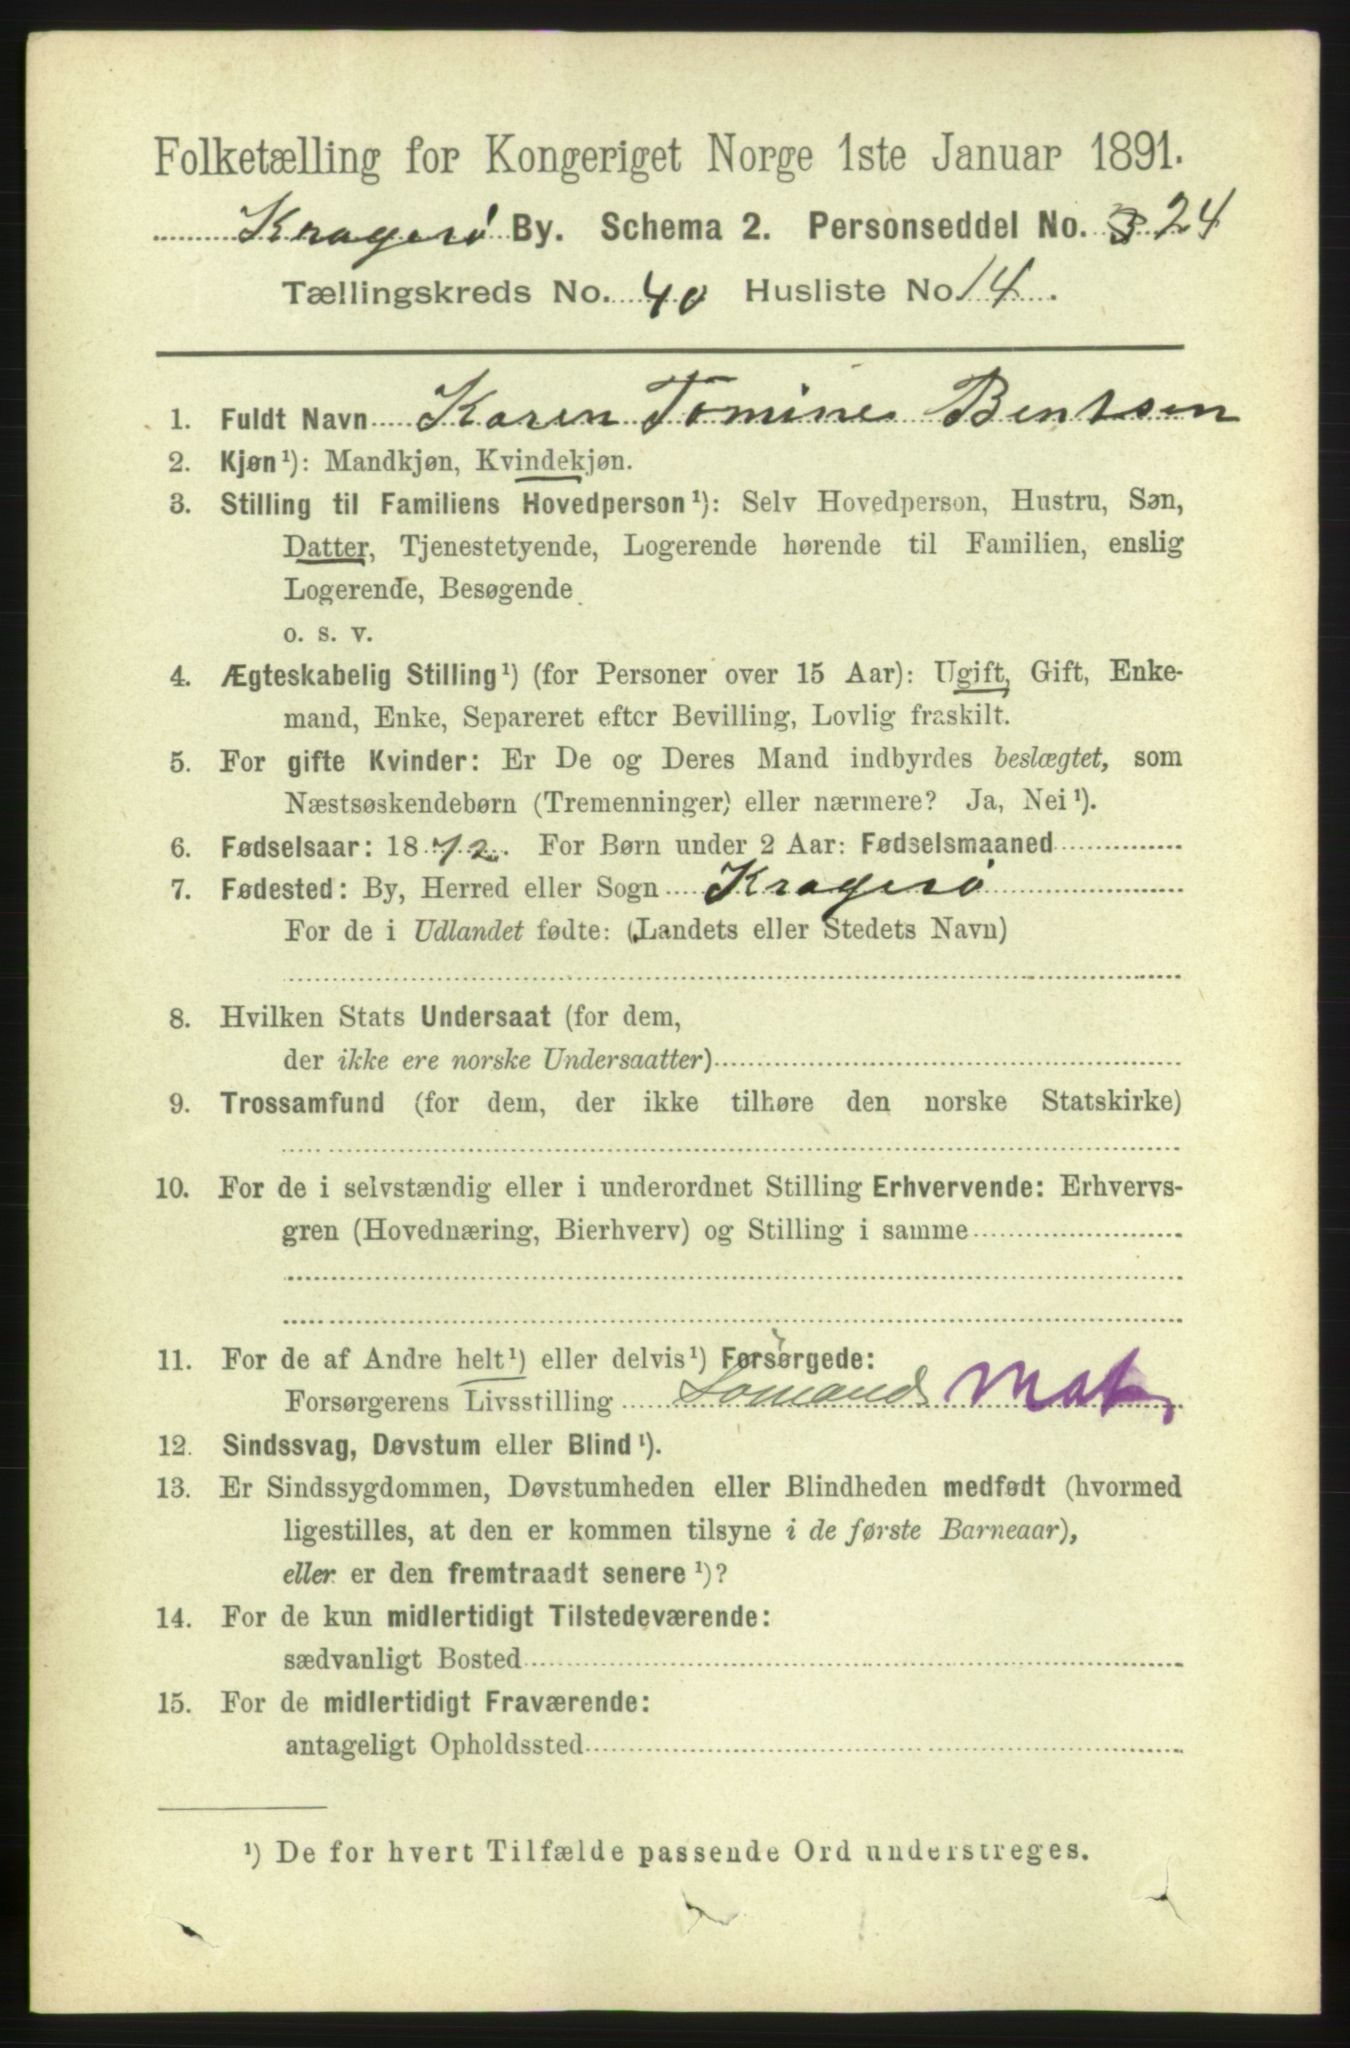 Folketælling for Kongeriget Norge 1ste Januar 1891.
Kragerø By. Schema 2. Personseddel No. 3 24
Tællingskreds No. 40 Husliste No 14.
1. Fuldt Navn Karen Tomine Bentsen
2. Kjøn¹): Mandkjøn, Kvindekjøn.
3. Stilling til Familiens Hovedperson¹): Selv Hovedperson, Hustru, Søn,
Datter, Tjenestetyende, Logerende hørende til Familien, enslig
Logerende, Besøgende
o. s. v.
4. Ægteskabelig Stilling¹) (for Personer over 15 Aar): Ugift, Gift, Enke-
mand, Enke, Separeret efter Bevilling, Lovlig fraskilt.
5. For gifte Kvinder: Er De og Deres Mand indbyrdes beslægtet, som
Næstsøskendebørn (Tremenninger) eller nærmere? Ja, Nei¹).
6. Fødselsaar: 1872. For Børn under 2 Aar: Fødselsmaaned
7. Fødested: By, Herred eller Sogn Kragerø
For de i Udlandet fødte: (Landets eller Stedets Navn)
8. Hvilken Stats Undersaat (for dem,
der ikke ere norske Undersaatter)
9. Trossamfund (for dem, der ikke tilhøre den norske Statskirke)
10. For de i selvstændig eller i underordnet Stilling Erhvervende: Erhvervs-
gren (Hovednæring, Bierhverv) og Stilling i samme
11. For de af Andre helt¹) eller delvis¹) Forsørgede:
Forsørgerens Livsstilling Sømand Mat,
12. Sindssvag, Døvstum eller Blind¹).
13. Er Sindssygdommen, Døvstumheden eller Blindheden medfødt (hvormed
ligestilles, at den er kommen tilsyne i de første Barneaar),
eller er den fremtraadt senere¹)?
14. For de kun midlertidigt Tilstedeværende:
sædvanligt Bosted
15. For de midlertidigt Fraværende:
antageligt Opholdssted
¹) De for hvert Tilfælde passende Ord understreges.